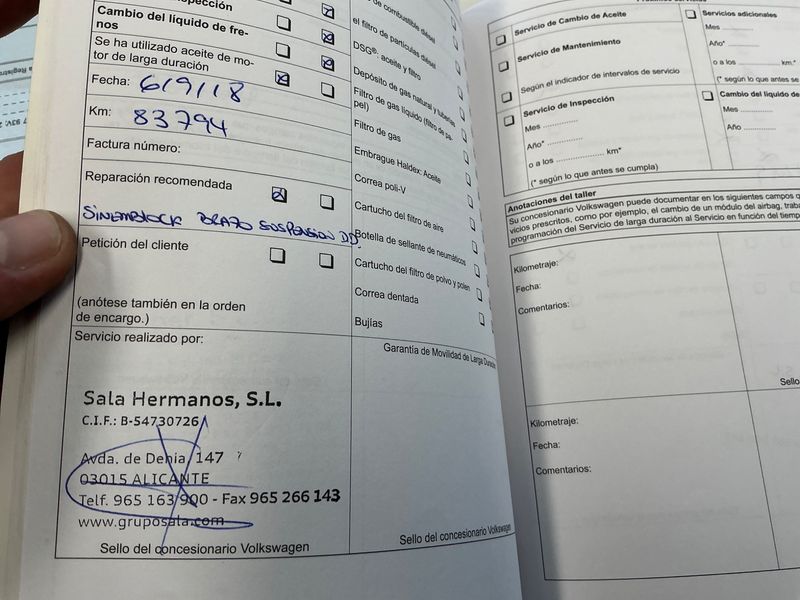 Inspección
Cambio del líquido de fre-
nos
Se ha utilizado aceite de mo-
tor de larga duración
Fecha: 6/9/18
Km: 83794
Factura número:
Reparación recomendada
SINEMBLOCK BRAZO SUSPENSION DD.
Petición del cliente
(anótese también en la orden
de encargo.)
Servicio realizado por:
Sala Hermanos, S.L.
C.I.F.: B-54730726
Avda. de Denia, 147
03015 ALICANTE
Telf. 965 163 900 - Fax 965 266 143
www.gruposala.com
Sello del concesionario Volkswagen
de combustible diésel
el filtro de partículas diésel
DSG®: aceite y filtro
Depósito de gas natural y tuberías
Filtro de gas líquido (filtro de pa-
pel)
Filtro de gas
Embrague Haldex: Aceite
Correa poli-V
Cartucho del filtro de aire
Botella de sellante de neumáticos
Cartucho del filtro de polvo y polen
Correa dentada
Bujías
Garantía de Movilidad de Larga Duración
Sello del concesionario Volkswagen
Servicio de Cambio de Aceite
Servicio de Mantenimiento
Según el indicador de intervalos de servicio
Servicio de Inspección
Mes ..............
Año* ..............
o a los .............. km*
(* según lo que antes se cumpla)
Servicios adicionales
Mes
Año*
o a los km.*
(* según lo que antes se
Cambio del líquido de
Mes
Año
Anotaciones del taller
Su concesionario Volkswagen puede documentar en los siguientes campos
vicios prescritos, como por ejemplo, el cambio de un módulo del airbag,
programación del Servicio de larga duración al Servicio en función del tiempo
Kilometraje:
Fecha:
Comentarios:
Sello
Kilometraje:
Fecha:
Comentarios: